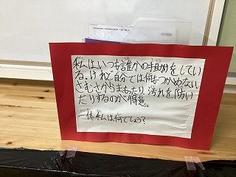 私はいつも誰かの相の手をしてい
る。けれど自分では何もつかめない
さむさからまもたり 汚れを防い
だりするのが得意。
一体 私は何でしょう？